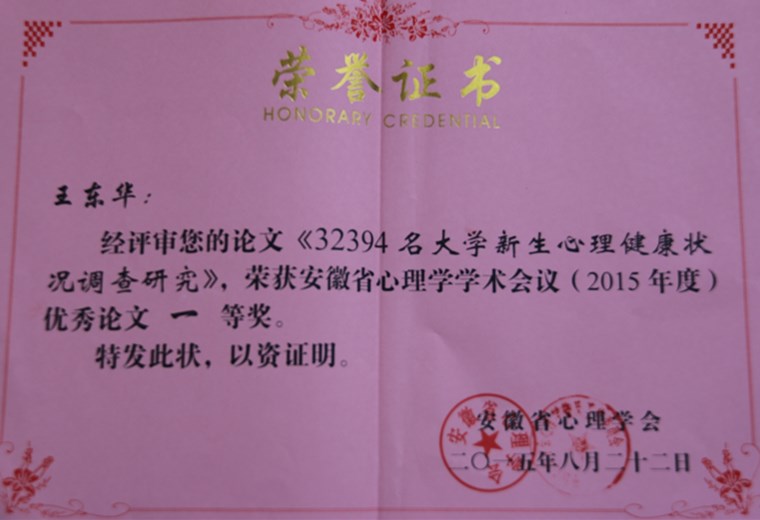 荣誉证书
HONORARY CREDENTIAL
王东华：
经评审您的论文《32394名大学新生心理健康状
况调查研究》，荣获安徽省心理学学术会议（2015年度）
优秀论文 一 等奖。
特发此状，以资证明。
安徽省心理学会
二〇一五年八月二十二日